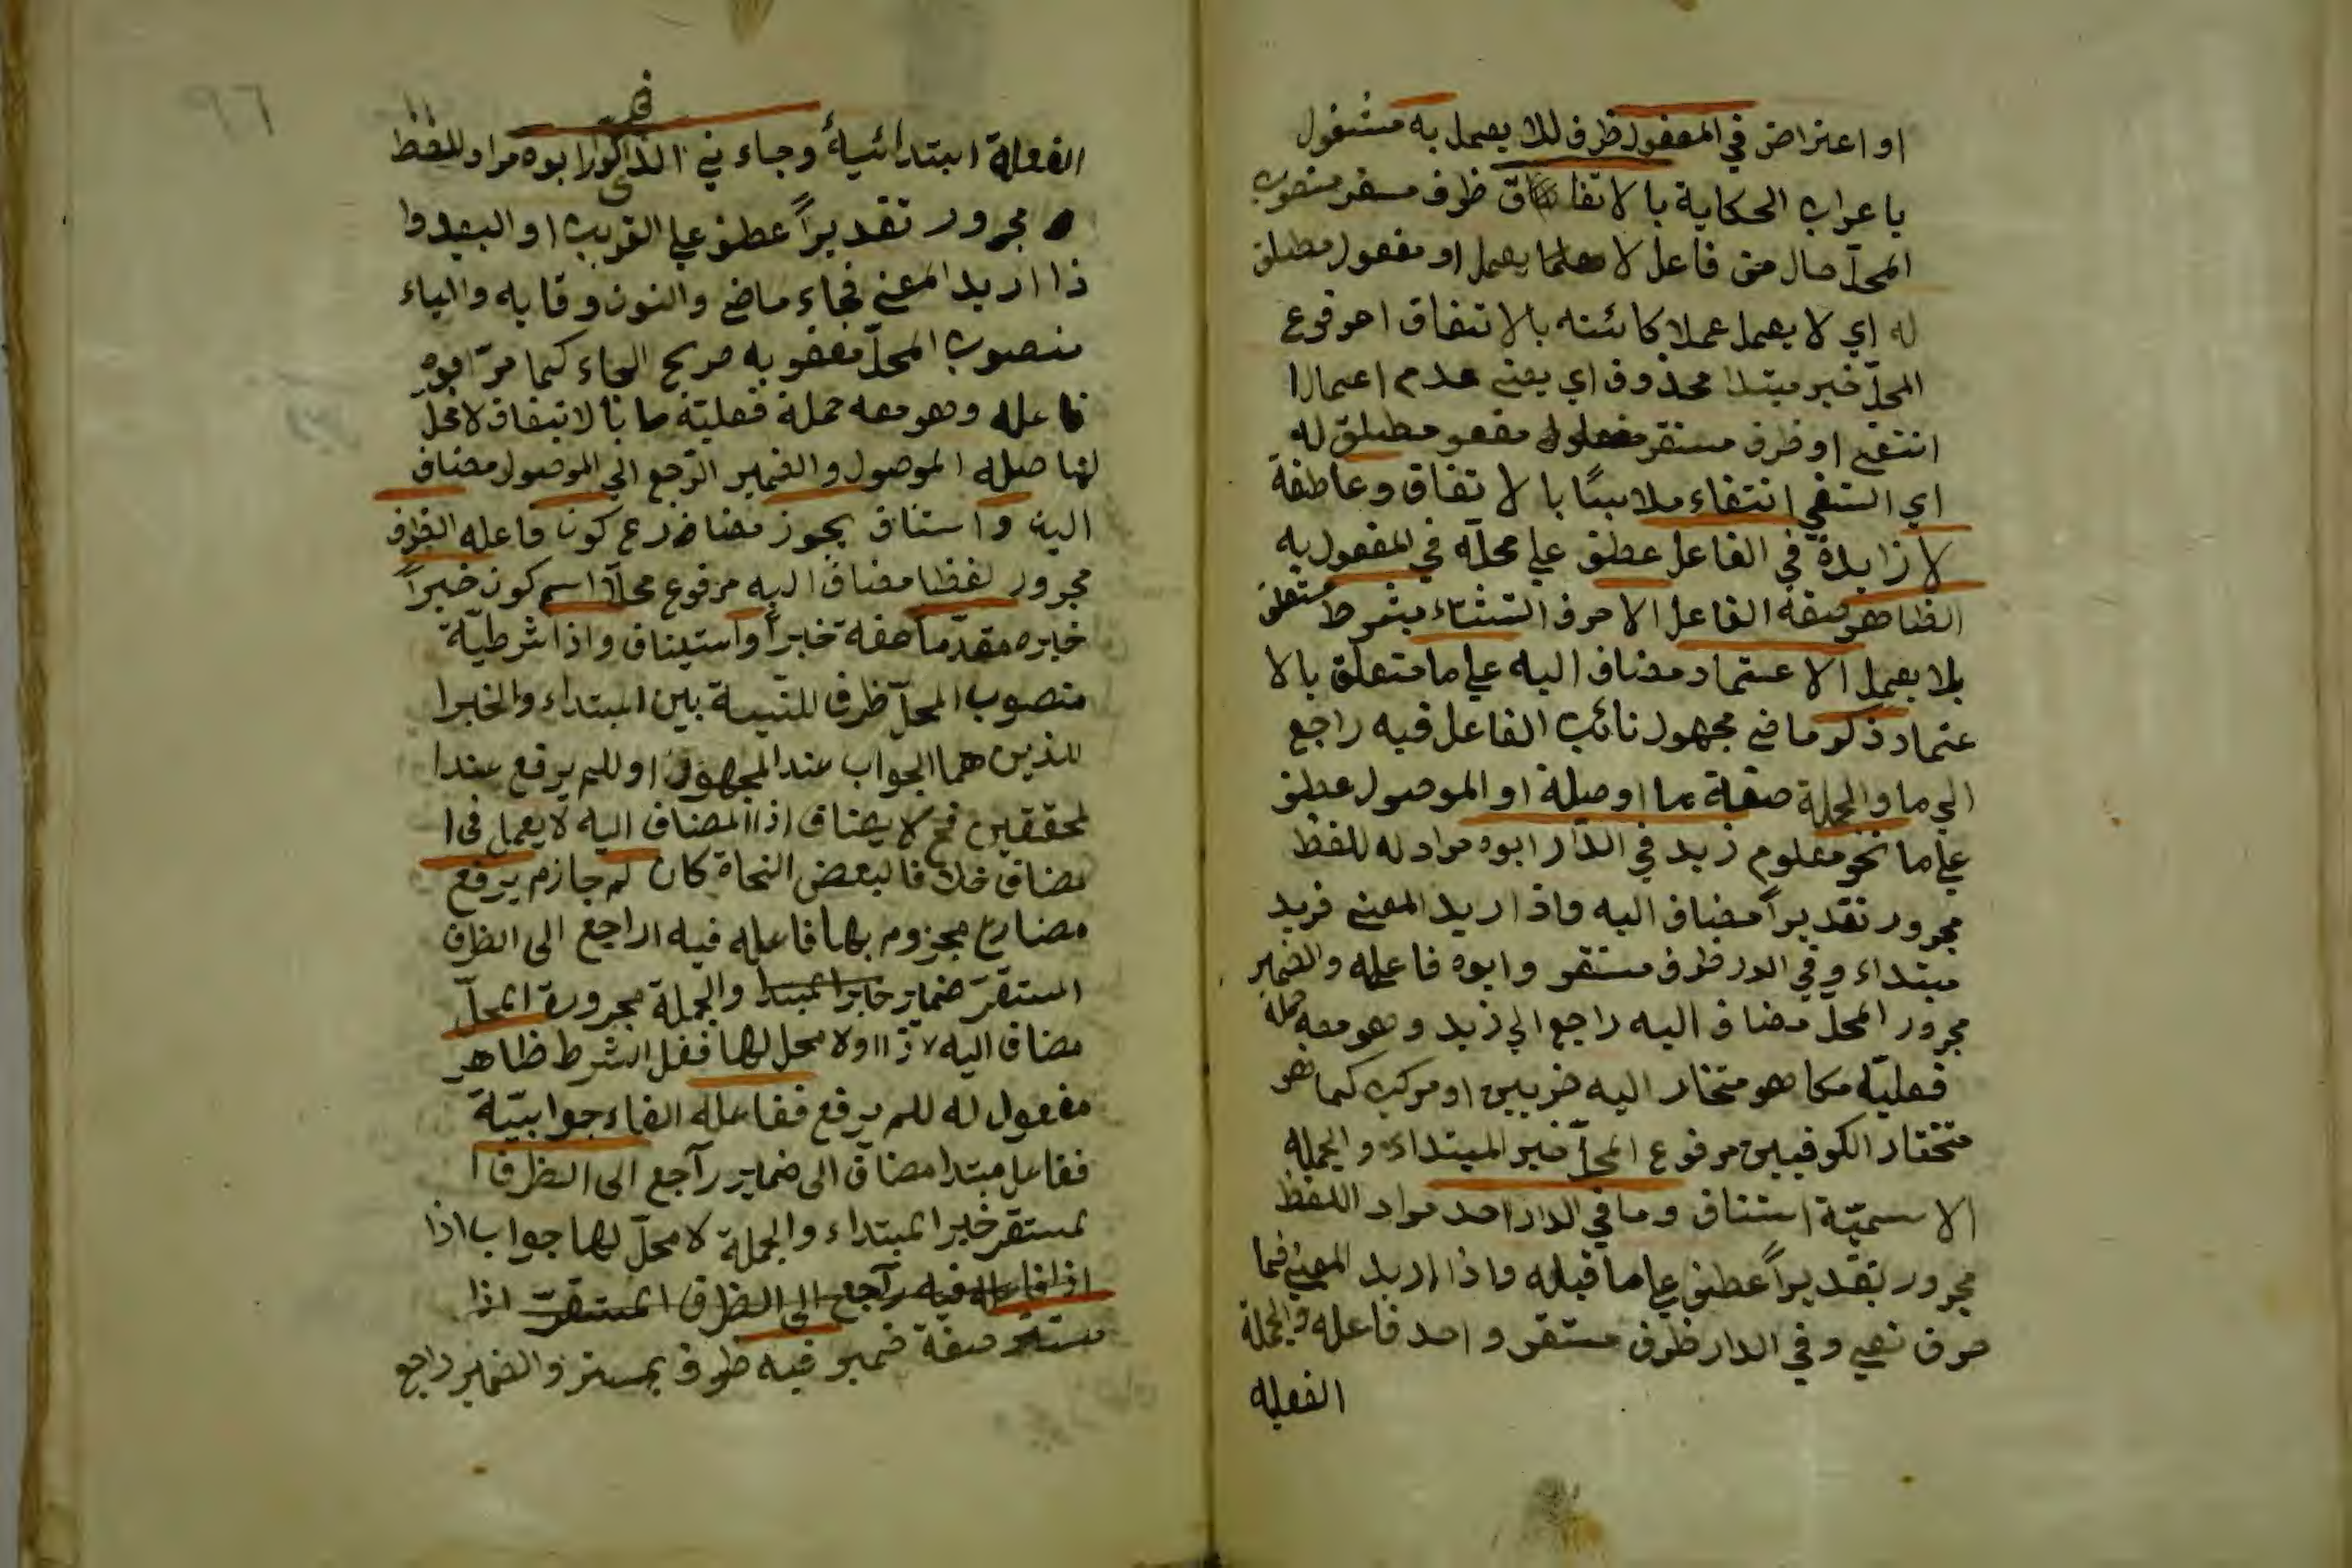 او اعتراض في المعفول ظرف للا يعمل به مشغول
باعراب الحكاية بالاتفاق ظرف مستقر منصوب
المحلّ حال من فاعل لا يعمل او مفعول مطلق
له اي لا يعمل عملا كائنه بالاتفاق مرفوع
المحلّ خبر مبتدا محذوف اي يعني عدم اعمال ا
انتفي او ظرف مستقر مفعو مطلق له
اي انتفي انتفاء ملابسًا بالاتفاق وعاطفة
لا زايدة في الفاعل عطف علي محلّه في المفعول به
الظاهر صفة الفاعل الا حرف استثناء بشرط متعلق
بلا يعمل الاعتماد مضاف اليه علي ما متعلق بالا
عتماد ذكر ماضي مجهول نائب الفاعل فيه راجع
الي ما والجملة صفة ما او صلة او الموصول عطف
علي ما نحو معلوم زيد في الدّار ابوه مراد له للفظ
مجرور تقديراً مضاف اليه واذا اريد المعني فزيد
مبتداء وفي الدر ظرف مستقر وابوه فاعله والضمير
مجرور المحلّ مضاف اليه راجع الي زيد وهو معه جملة
فعليّة مكا هو متخار اليه ضريين او مركب كما هو
متختار الكوفيين مرفوع المحلّ خبر المبتداء والجمله
الاسميّة استناف وما في الدار احد مراد اللفظ
مجرور تقديراً عطف علي ما قبله واذا اريد المعني فما
حرف نفي وفي الدار ظرف مستقر واحد فاعله والجملة
الفعليه
٩٦
الفعلة ابتدائيةً وجاء ني الذي في الدار ابوه مراد للفظ
مجرور تقديراً عطف علي القريب او البعيد وا
ذا اريد المعني فجاء ماضي والنون وقايه والياء
منصوب المحلّ مفعو به صريح الجاء كما مرّ ابوه
فاعله وهو معه جملة فعليّة بالاتفاق لا محلّ
لها صله الموصول والضمير الرّجع الي الموصول مضاف
اليه واستناف يجوز مضارع كون فاعله الظرف
مجرور لفظا مضاف اليه مرفوع محلّا اسم كون خبراً
خبره مقدّما صفة خبراً واستيناف واذا شرطيّة
منصوب المحلّ ظرف للنّسبة بين المبتداء والخبر ا
للذين هما الجواب عند الجمهور او للم يرفع عند ا
لمحققين فح لا يضاف اذا المضاف اليه لا يعمل في ا
مضاف خلافا لبعض النحاة كان لم جازم يرفع
مضارع مجزوم بها فاعله فيه الراجع الى الظرف
المستقرّ ضماير خابر المبتدا والجملة مجرورة المحلّ
مضاف اليه لاذا ولا محل لها فعل الشرط ظاهر
مفعول له للم يرفع ففاعله الفاء جوابيّة
ففاعل مبتدا مضاف الى ضماير راجع الى الظرف ا
لمستقر خبر المبتداء والجملة لا محلّ لها جواب اذا
اذا فاعله فيه راجع الى الظرف المستقرّ اذا
مستتر صفة ضمير فيه ظرف لمستتر والضمير راجع